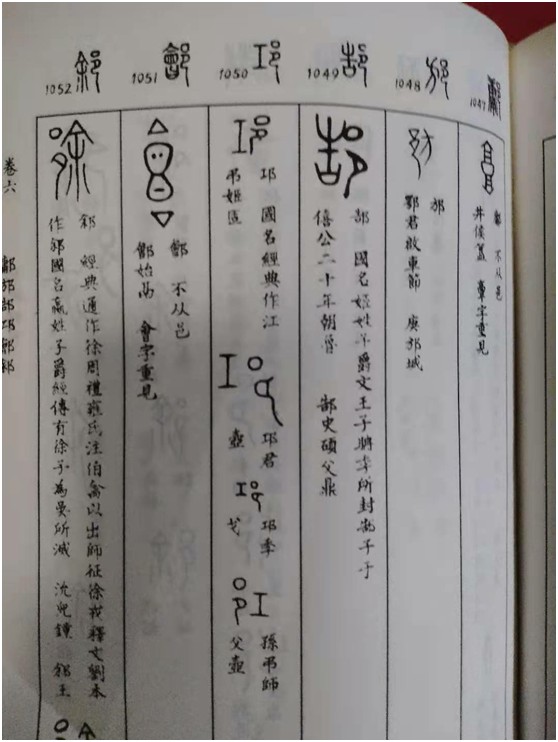 1047
鄘 不从邑
井侯簋 字重見
1048 邡
邡
鄂君啟車節 庚邡城
1049 郜
郜 國名姬姓子爵文王子所封郜子于
僖公二十年朝魯 郜史碩父鼎
1050 邛
邛 國名經典作江
弔姬
邛君
壺
邛季
戈
孫弔師
父壺
1051 鄶
鄶 不从邑
鄶始鬲 會字重見
1052 䣄
䣄 經典通作徐周禮雍氏注伯禽以出師征徐戎釋文劉本
作䣄國名嬴姓子爵經傳有徐子為吳所滅 沇兒鐘 䣄王
卷六
鄘邡郜邛鄶䣄